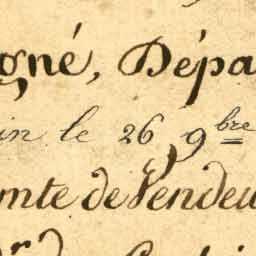 gné, Dépa
in le 26 9bre
mte de Vendeu